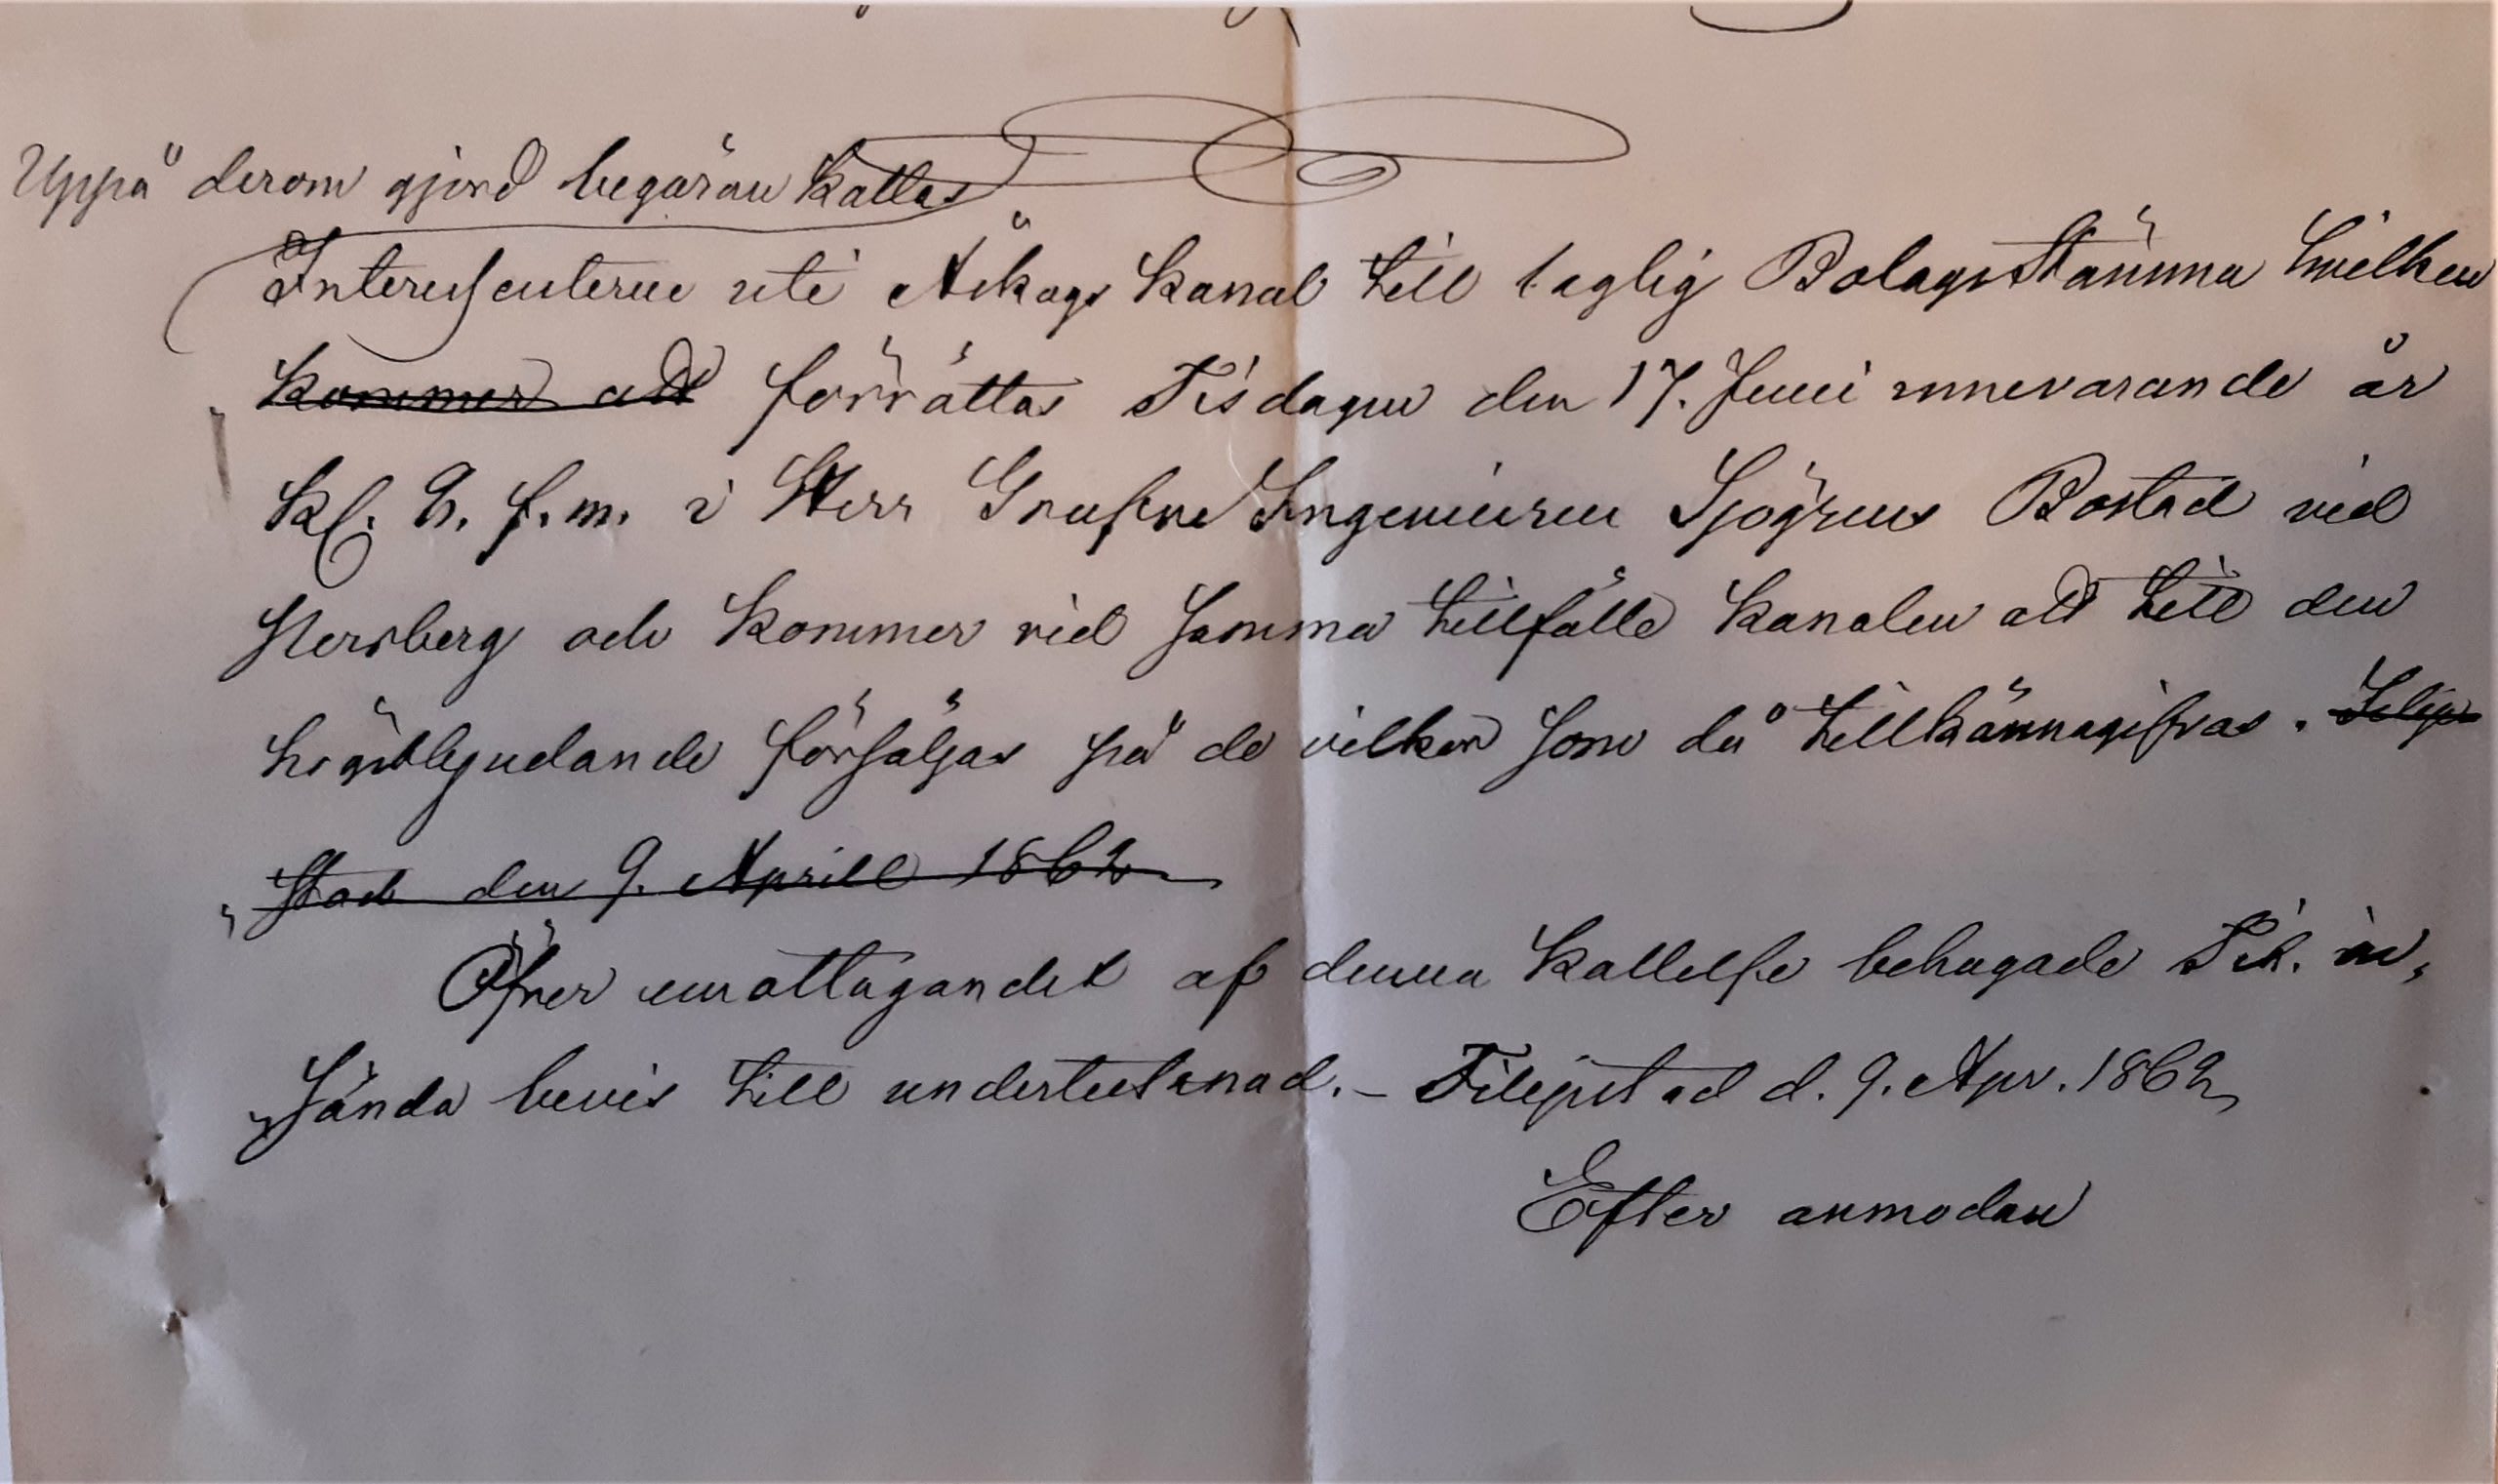 Uppå derom gjord begäran kallas
Interessenterne uti Åskags kanal till laglig Bolags Stämma hvilken
kommer att förrättas Tisdagen den 17. Juni innevarande år
Kl. 9. f.m. i Herr Grufve Ingenieuren Sjögrens Bostad vid
Persberg och kommer vid samma tillfälle kanalen att till den
högstbjudande försäljas på de vilkor som då tillkännagifvas. Filip-
stad den 9. Aprill 1862
Öfver emottagandet af denna kallelse behagade Tit. in-
sända bevis till undertecknad. – Filipstad d. 9. Apr. 1862
Efter anmodan